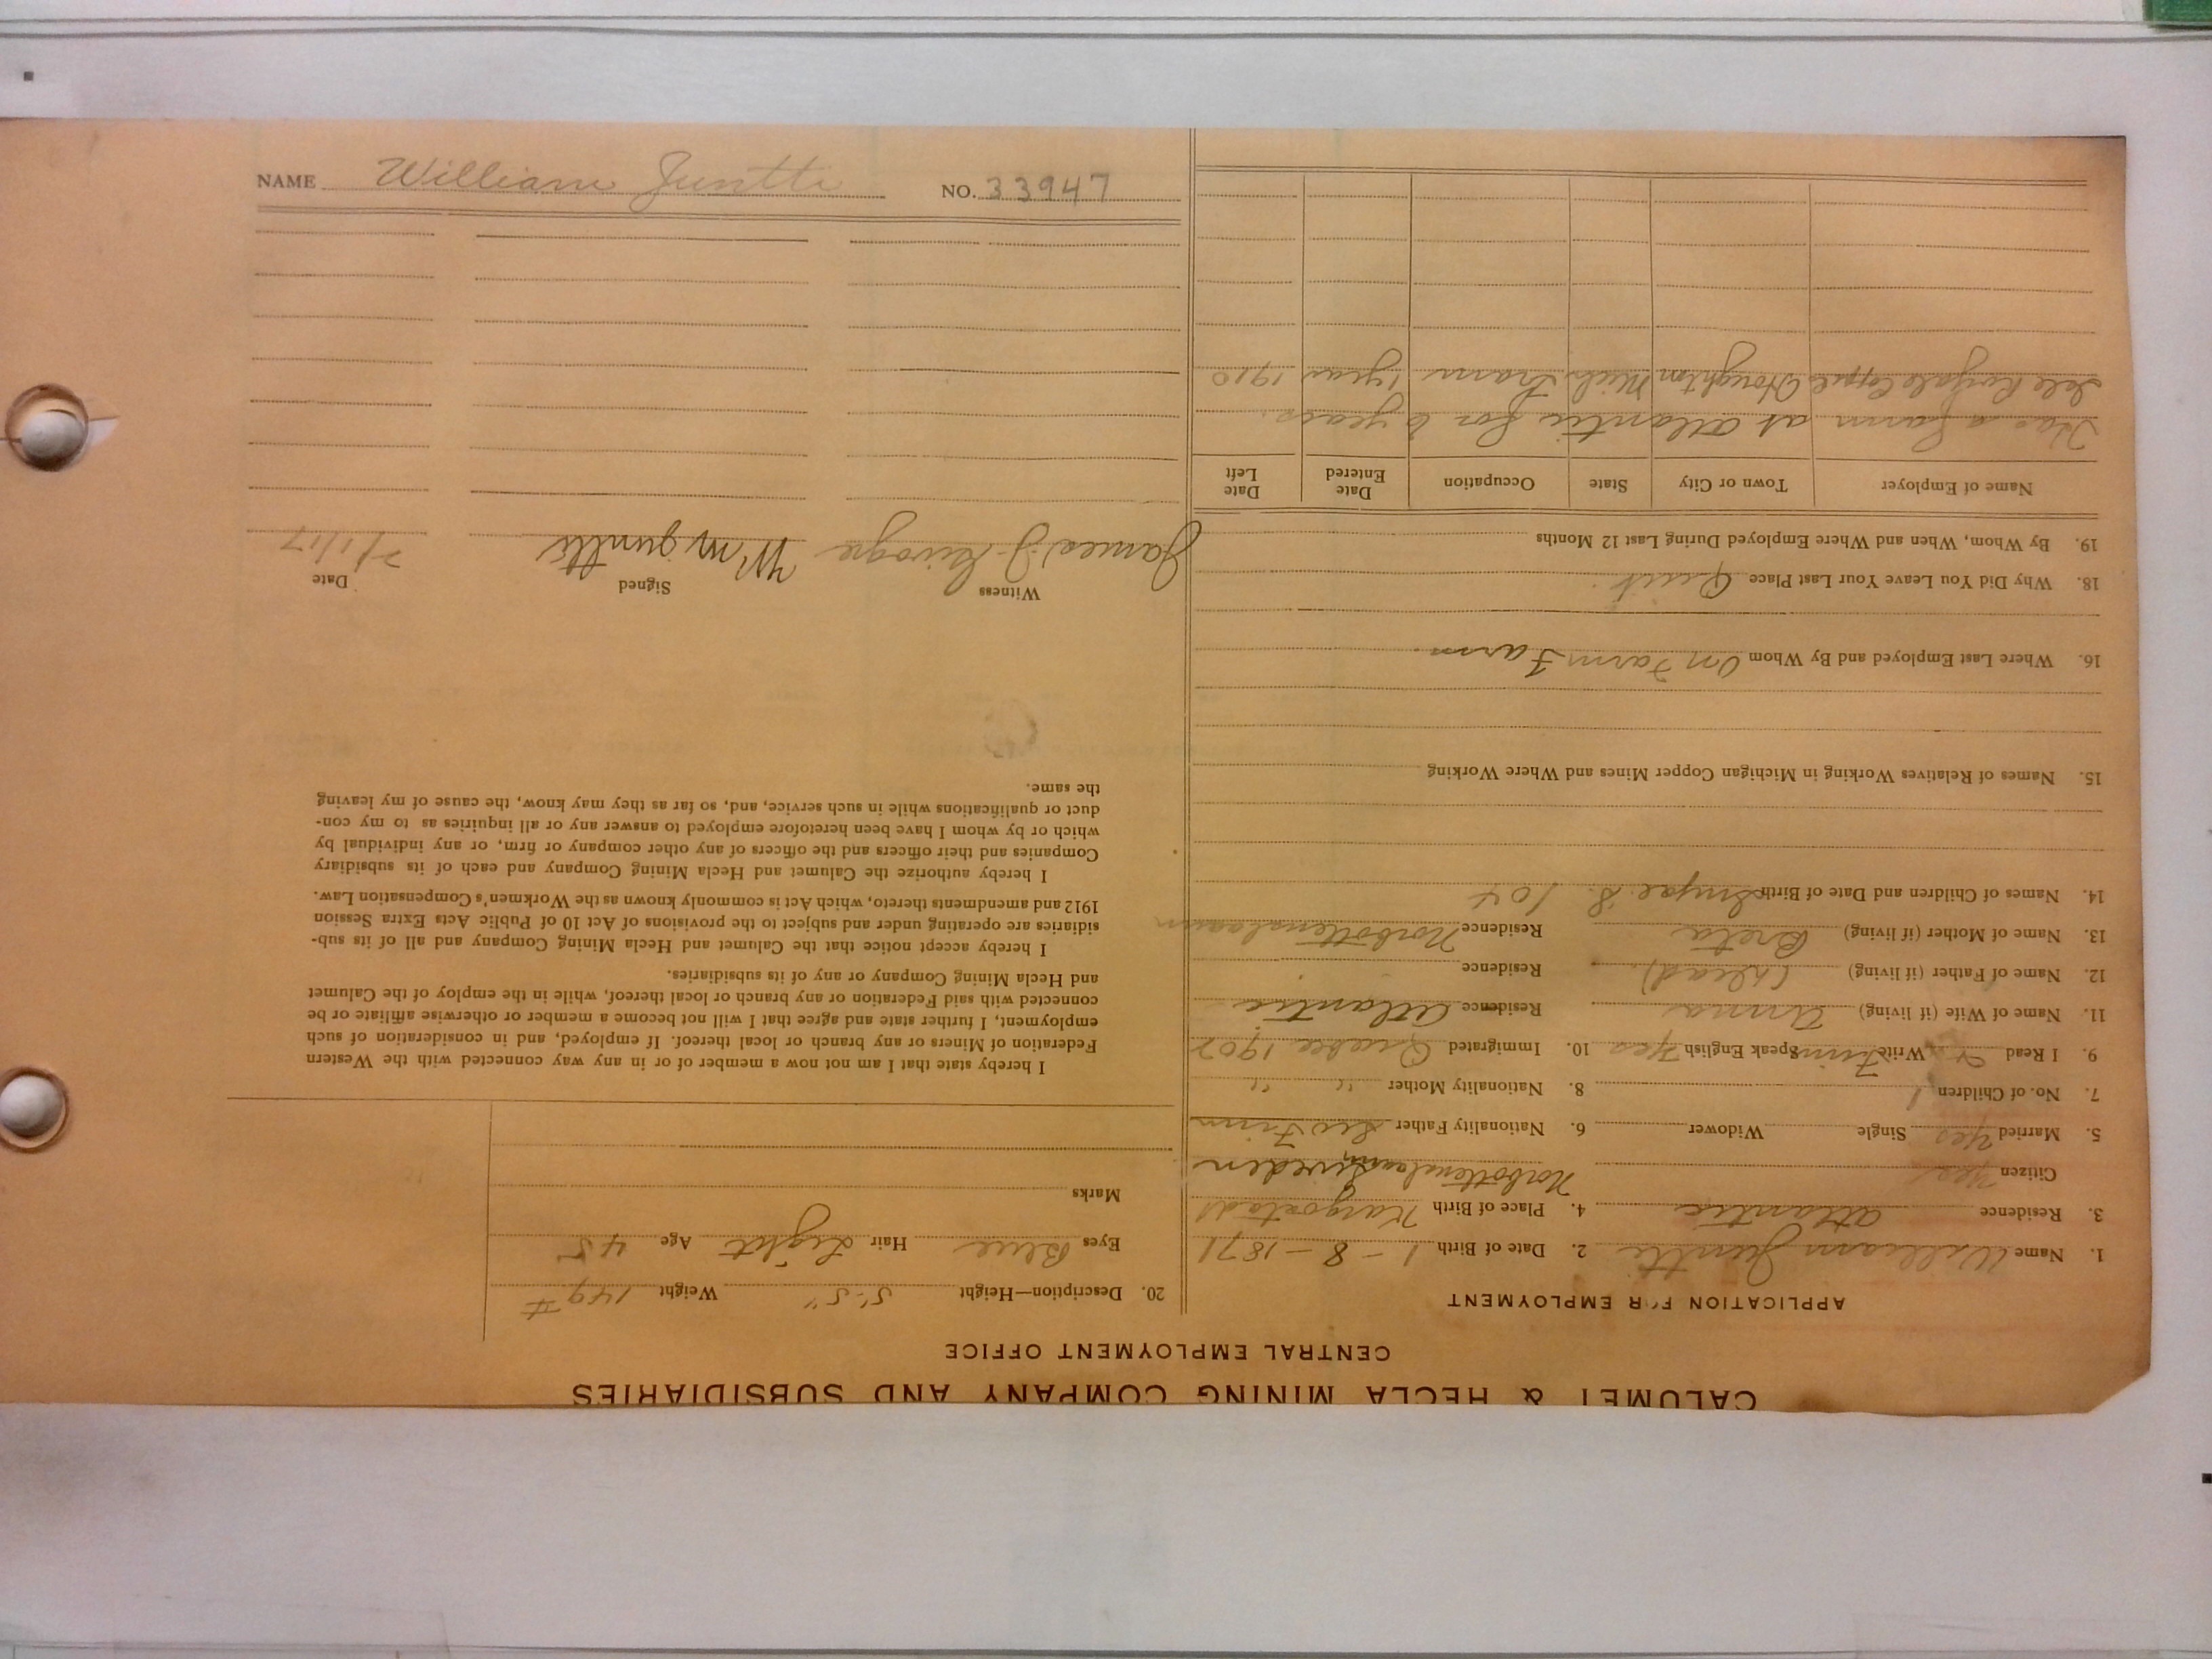 NAME William Juntti NO. 33947
CALUMET & HECLA MINING COMPANY AND SUBSIDIARIES
CENTRAL EMPLOYMENT OFFICE
APPLICATION FOR EMPLOYMENT
1. Name William Juntti 2. Date of Birth 1-8-1871
3. Residence Atlantic 4. Place of Birth
Citizen Norbottenslaann Sweden
5. Married Yes Single Widower 6. Nationality Father Finn
7. No. of Children 1 8. Nationality Mother " "
9. I Read Write Finn Speak English Yes 10. Immigrated Quebec 1902
11. Name of Wife (if living) Anna Residence Atlantic
12. Name of Father (if living) (Dead) Residence
13. Name of Mother (if living) Greta Residence Norbottenslaann
14. Names of Children and Date of Birth
15. Names of Relatives Working in Michigan Copper Mines and Where Working
16. Where Last Employed and By Whom On Farm Farm
18. Why Did You Leave Your Last Place Quit
19. By Whom, When and Where Employed During Last 12 Months
Name of Employer Town or City State Occupation Date Entered Date Left
Has a farm at Atlantic for 6 years.
Isle Royale Copper Houghton Mich Tram 1 year 1910
20. Description—Height 5'-5" Weight 149 #
Eyes Blue Hair Light Age 45
Marks
I hereby state that I am not now a member of or in any way connected with the Western
Federation of Miners or any branch or local thereof. If employed, and in consideration of such
employment, I further state and agree that I will not become a member or otherwise affiliate or be
connected with said Federation or any branch or local thereof, while in the employ of the Calumet
and Hecla Mining Company or any of its subsidiaries.
I hereby accept notice that the Calumet and Hecla Mining Company and all of its sub-
sidiaries are operating under and subject to the provisions of Act 10 of Public Acts Extra Session
1912 and amendments thereto, which Act is commonly known as the Workmen's Compensation Law.
I hereby authorize the Calumet and Hecla Mining Company and each of its subsidiary
Companies and their officers and the officers of any other company or firm, or any individual by
which or by whom I have been heretofore employed to answer any or all inquiries as to my con-
duct or qualifications while in such service, and, so far as they may know, the cause of my leaving
the same.
Witness Signed Date
James J. Wm Juntti 2/1/17